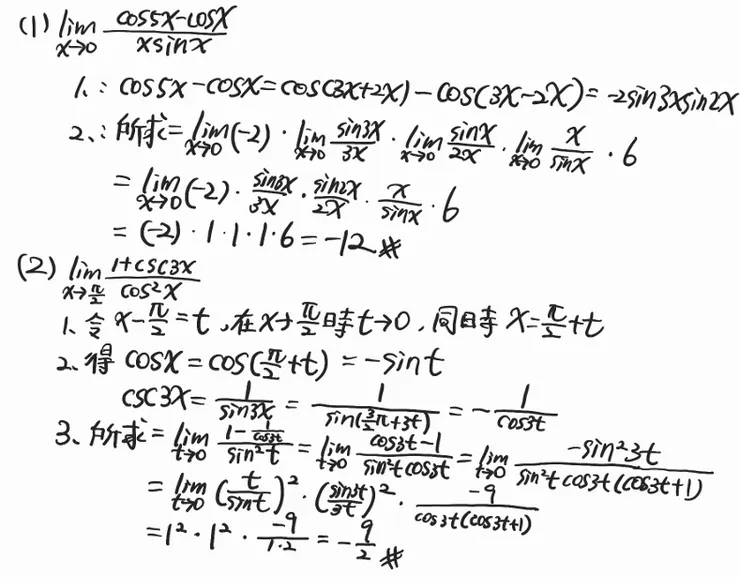 (1) lim x→0 (cos5x-cosx)/(xsinx)
1、: cos5x-cosx=cos(3x+2x)-cos(3x-2x)=-2sin3xsin2x
2、: 所求=lim x→0 (-2)·lim x→0 sin3x/3x·lim x→0 sinx/2x·lim x→0 x/sinx·6
=lim x→0 (-2)·sin3x/3x·sin2x/2x·x/sinx·6
=(-2)·1·1·1·6=-12 #
(2) lim x→π/2 (1+csc3x)/(cos²x)
1、令x-π/2=t,在x→π/2時t→0,同時x=π/2+t
2、得cosx=cos(π/2+t)=-sint
csc3x=1/sin3x=1/sin(3/2π+3t)=-1/cos3t
3、所求=lim t→0 (1-1/cos3t)/(sin²t)=lim t→0 (cos3t-1)/(sin²tcos3t)=lim t→0 (-sin²3t)/(sin²tcos3t(cos3t+1))
=lim t→0 (t/sint)²·(sin3t/3t)²·(-9)/(cos3t(cos3t+1))
=1²·1²·-9/1·2=-9/2 #